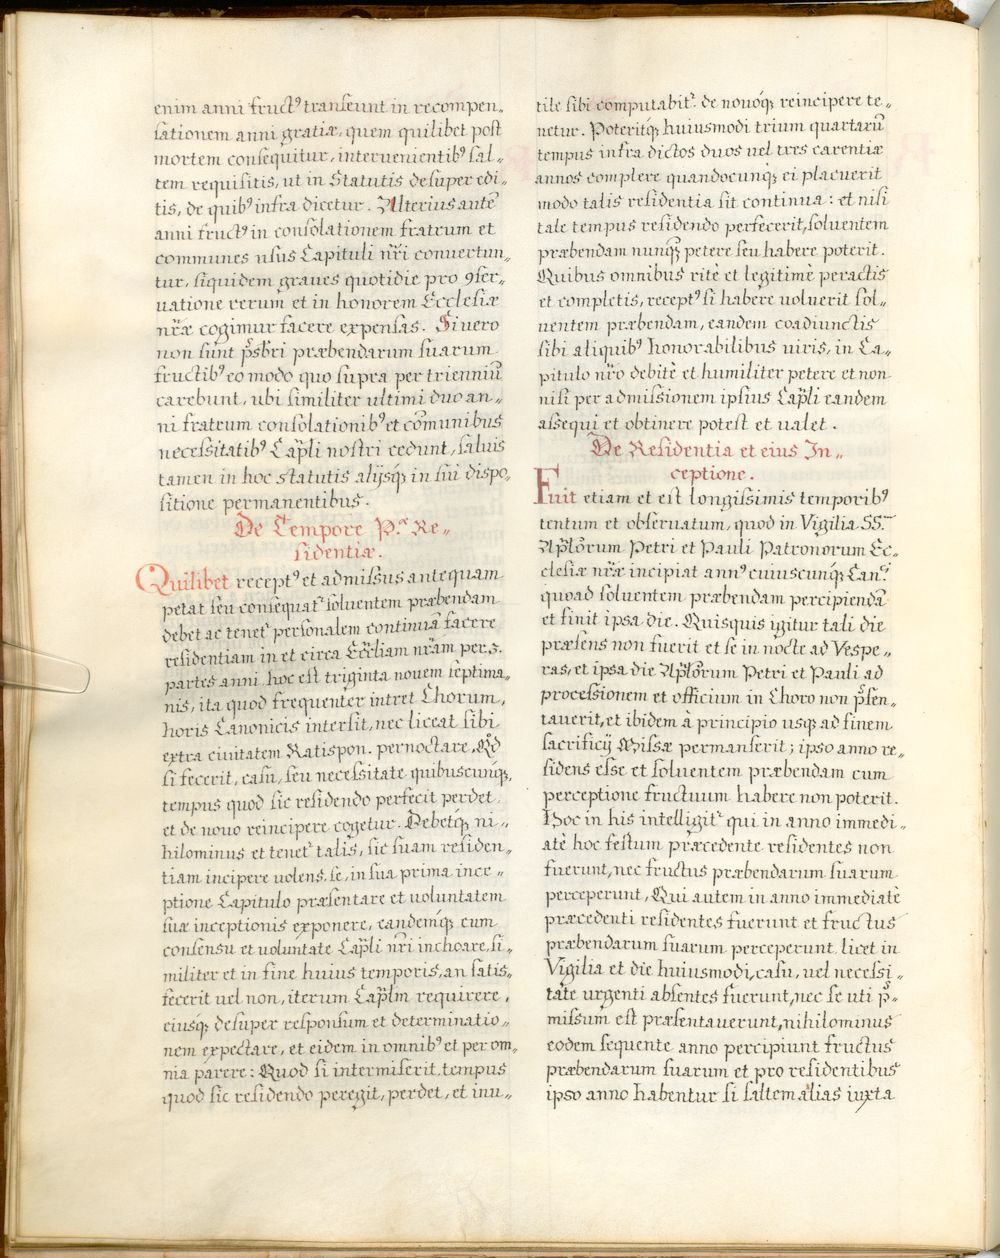 enim anni fruct⁹ transeunt in recompen„
sationem anni gratiæ, quem quilibet post
mortem consequitur, intervenientib⁹ sal„
tem requisitis, ut in Statutis desuper edi„
tis, de quib⁹ infra dicetur. Alterius autē
anni fruct⁹ in consolationem fratrum et
communes usus Capituli nr̃i convertun„
tur, siquidem graues quotidie pro 9ser„
uatione rerum et in honorem Ecclesiæ
nr̃æ cogimur facere expensas. Si uero
non sunt p̃sb̃ri præbendarum suarum
fructib⁹ eo modo quo supra per trienniū
carebunt, ubi similiter ultimi duo an„
ni fratrum consolationib⁹ et cõmunibus
necessitatib⁹ Cap̃li nostri cedunt, saluis
tamen in hoc statutis alijsq́; in sui dispo„
sitione permanentibus.
De Tempore P.ᵃᵉ Re„
sidentiæ.
Quilibet recept⁹ et admissus antequam
petat seu consequat.ʳ soluentem præbendam
debet ac tenet.ʳ personalem continuā facere
residentiam in et circa Ecc̃liam nr̃am per 3.
partes anni. hoc est triginta nouem septima„
nis, ita quod frequenter intret Chorum,
horis Canonicis intersit, nec liceat sibi
extra ciuitatem Ratispon. pernoctare, Qd̃
si fecerit, casu, seu necessitate quibuscunq́;,
tempus quod sic residendo perfecit perdet,
et de nouo reincipere cogetur. Debetq́; ni„
hilominus et tenet.ʳ talis, sic suam residen„
tiam incipere uolens, se, in sua prima ince„
ptione Capitulo præsentare et voluntatem
suæ inceptionis exponere, eandemq́; cum
consensu et uoluntate Cap̃li nr̃i inchoare, si„
militer et in fine huius temporis, an satis„
fecerit uel non, iterum Cap̃lm requirere,
eiusq́; desuper responsum et determinatio„
nem expectare, et eidem in omnib⁹ et per om„
nia parere: Quod si intermiserit, tempus
quod sic residendo peregit, perdet, et inu„
tile sibi computabit.ʳ de nouóq́; reincipere te„
netur. Poteritq́; huiusmodi trium quartarū
tempus infra dictos duos uel tres carentiæ
annos complere quandocunq́; ei placuerit
modo talis residentia sit continua: et nisi
tale tempus residendo perfecerit, soluentem
præbendam nunq̃ petere seu habere poterit.
Quibus omnibus ritè et legitimè peractis
et completis, recept⁹ si habere uoluerit sol„
uentem præbendam, eandem coadiunctis
sibi aliquib⁹ honorabilibus uiris, in Ca„
pitulo nr̃o debitè et humiliter petere et non
nisi per admissionem ipsius Cap̃li eandem
assequi et obtinere potest et ualet.
De Residentia et eius In„
ceptione.
Fuit etiam et est longissimis temporib⁹
tentum et obseruatum, quod in Vigilia SS.ᵐ
Ap̃lorum Petri et Pauli Patronorum Ec„
clesiæ nr̃æ incipiat ann⁹ cuiuscunq́; Can.ⁱ
quoad soluentem præbendam percipiendā
et finit ipsa die. Quisquis igitur tali die
præsens non fuerit et se in nocte ad Vespe„
ras, et ipsa die Ap̃lorum Petri et Pauli ad
processionem et officium in Choro non p̃sen„
tauerit, et ibidem à principio usq́; ad finem
sacrificij Missæ permanserit; ipso anno re„
sidens esse et soluentem præbendam cum
perceptione fructuum habere non poterit.
Hoc in his intelligit.ʳ qui in anno immedi„
atè hoc festum præcedente residentes non
fuerunt, nec fructus præbendarum suarum
perceperunt, Qui autem in anno immediatè
præcedenti residentes fuerunt et fructus
præbendarum suarum perceperunt, licet in
Vigilia et die huiusmodi, casu, uel necessi„
tate urgenti absentes fuerunt, nec se uti p̃„
missum est præsentauerunt, nihilominus
eodem sequente anno percipiunt fructus
præbendarum suarum et pro residentibus
ipso anno habentur si saltem alias iuxta